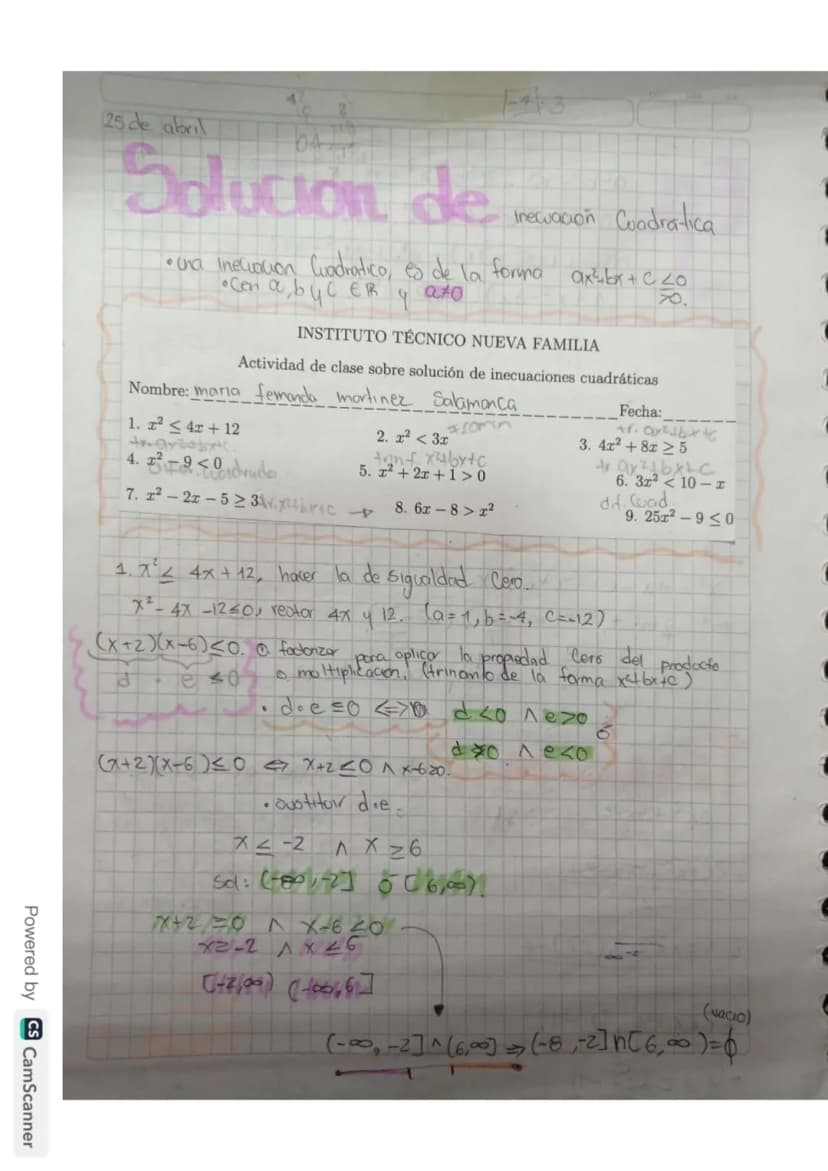 25 de abril
Solucion de inecuación Cuadratica
• una inecuacion Cuadratica, es de la forma ax²+bx+c ≤0
• Con a, b y c ∈ R y a≠0 ≥0.
INSTITUTO TÉCNICO NUEVA FAMILIA
Actividad de clase sobre solución de inecuaciones cuadráticas
Nombre: maria fernanda martinez Salamanca Fecha:
1. x² ≤ 4x + 12 2. x² < 3x 3. 4x² + 8x ≥ 5
4. x² − 9 < 0 5. x² + 2x + 1 > 0 6. 3x² < 10 − x
7. x² − 2x − 5 ≥ 3 8. 6x − 8 > x² 9. 25x² − 9 ≤ 0
1. x² ≤ 4x + 12, hacer la desigualdad Cero.
x² - 4x - 12 ≤ 0, restar 4x y 12. (a=1, b=-4, c=-12)
(x+2)(x-6) ≤ 0. factorizar para aplicar la propiedad Cero del producto
d . e ≤ 0 o multiplicación. (trinomio de la forma x²+bx+c)
• d•e ≤ 0 <=> d<0 ∧ e>0 ó
∧ e<0
(x+2)(x-6) ≤ 0 ⇔ x+2 ≤ 0 ∧ x-6≥0.
• sustituir d•e.
x ≤ -2 ∧ x ≥ 6
Sol: (-∞,-2] ó [6,∞).
x+2 ≥ 0 ∧ x-6 ≤ 0
x ≥ -2 ∧ x ≤ 6
[-2,∞) (-∞,6]
(vacio)
(-∞, -2] ∧ (6,∞] ⇒ (-8,-2] ∩ [6,∞) = ϕ
Powered by CS CamScanner